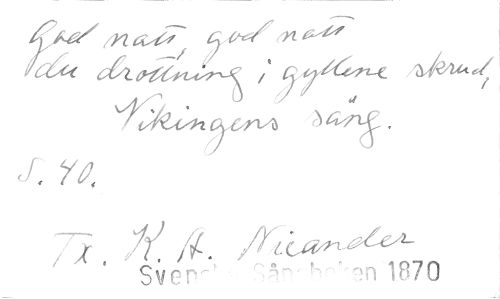 God natt, god natt
du drottning i gyllene skrud,
Vikingens sång.
S. 40.
Tx. K. A. Nicander
Svenska Sångboken 1870